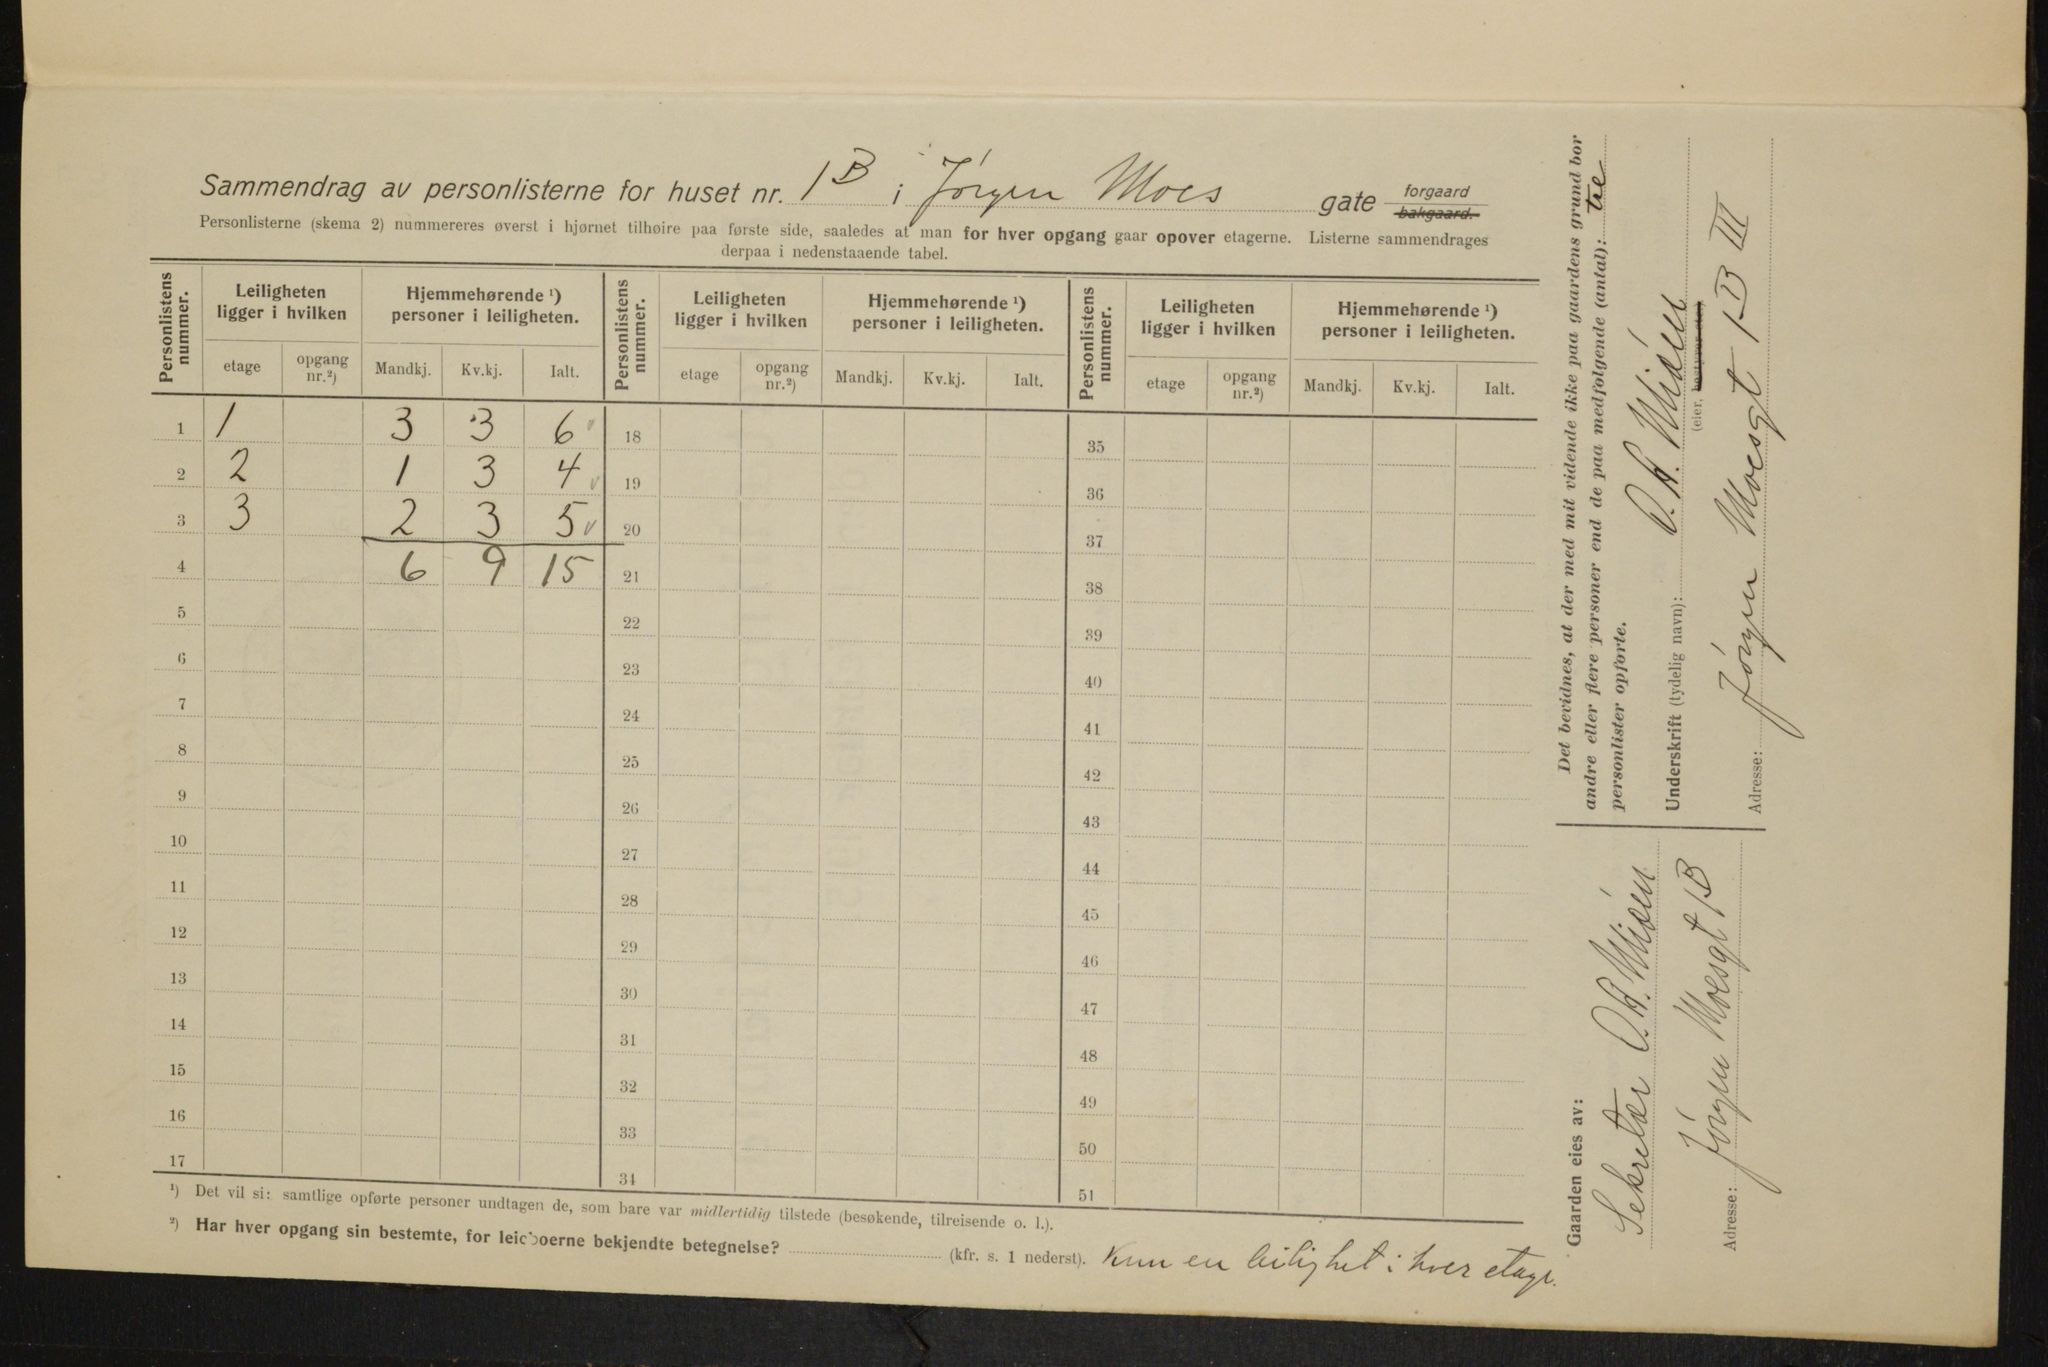 Sammendrag av personlisterne for huset nr. 1B i Jørgen Moes gate forgaard bakgaard.
Personlisterne (skema 2) nummereres øverst i hjørnet tilhøire paa første side, saaledes at man for hver opgang gaar opover etagerne. Listerne sammendrages
derpaa i nedenstaaende tabel.
Personlistens nummer. Leiligheten ligger i hvilken Hjemmehørende ¹) personer i leiligheten. Personlistens nummer. Leiligheten ligger i hvilken Hjemmehørende ¹) personer i leiligheten. Personlistens nummer. Leiligheten ligger i hvilken Hjemmehørende ¹) personer i leiligheten.
etage opgang nr.²) Mandkj. Kv.kj. Ialt. etage opgang nr.²) Mandkj. Kv.kj. Ialt. etage opgang nr.²) Mandkj. Kv.kj. Ialt.
1 1 3 3 6 18 35
2 2 1 3 4 19 36
3 3 2 3 5 20 37
4 6 9 15 21 38
5 22 39
6 23 40
7 24 41
8 25 42
9 26 43
10 27 44
11 28 45
12 29 46
13 30 47
14 31 48
15 32 49
16 33 50
17 34 51
¹) Det vil si: samtlige opførte personer undtagen de, som bare var midlertidig tilstede (besøkende, tilreisende o. l.).
²) Har hver opgang sin bestemte, for leieboerne bekjendte betegnelse? (kfr. s. 1 nederst). Kun en leilighet i hver etage.
Det bevidnes, at der med mit vidende ikke paa gaardens grund bor
andre eller flere personer end de paa medfølgende (antal): tre
personlister opførte.
Underskrift (tydelig navn): O. A. Mjøen
(eier,
Adresse: Jørgen Moesgt 1B III
Gaarden eies av:
Sekretær O. A. Mjøen
Adresse: Jørgen Moesgt 1B